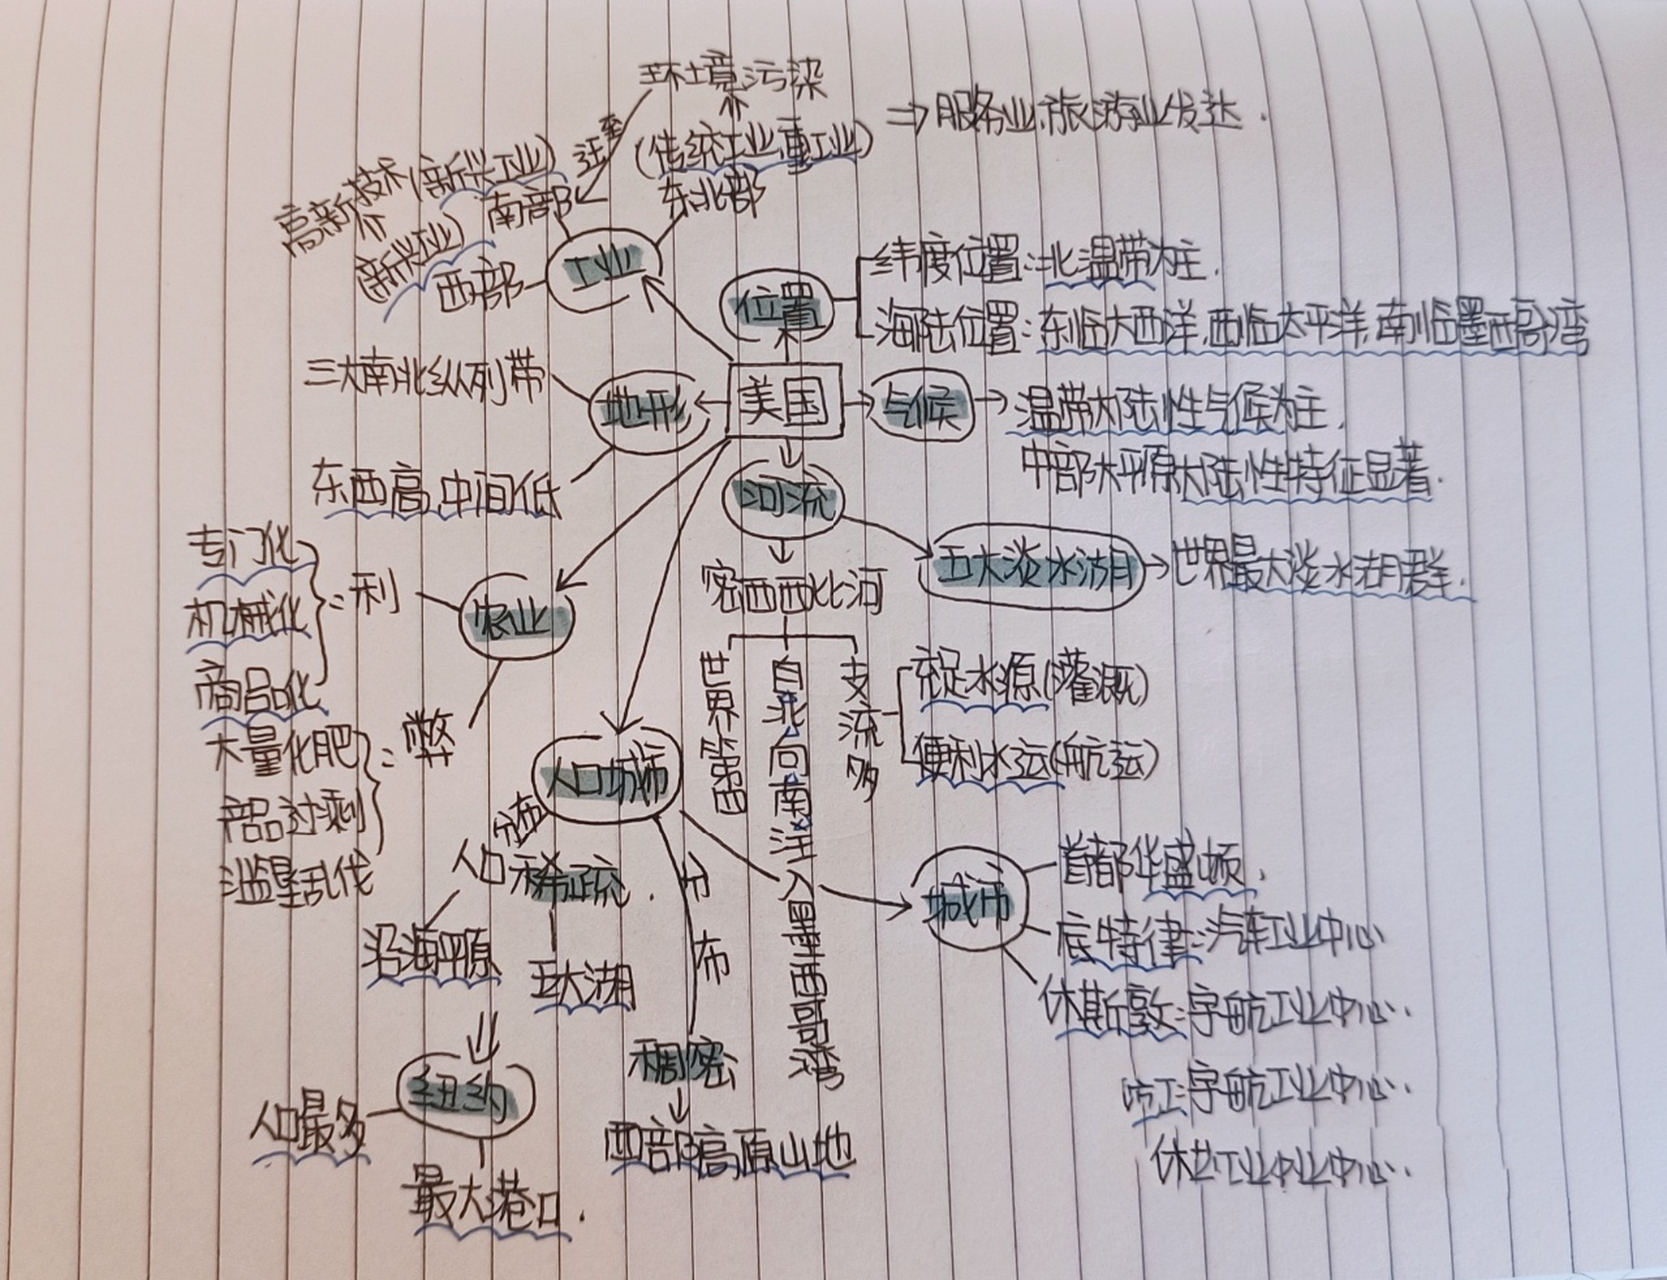 环境污染
⇒服务业,旅游业发达.
(传统工业重工业)
迁至
高新技术(新兴工业)
南部
东北部
(新兴工业)
西部
工业
位置
纬度位置:北温带为主.
海陆位置:东临大西洋,西临太平洋,南临墨西哥湾
三大南北纵列带
地形
美国
气候
温带大陆性气候为主.
中部大平原大陆性特征显著.
东西高,中间低
河流
五大淡水湖
世界最大淡水湖群.
专门化
机械化
商品化
利
农业
密西西比河
世界第四
自北向南注入墨西哥湾
支流多
充足水源(灌溉)
便利水运(航运)
大量化肥
产品过剩
滥垦乱伐
弊
人口城市
分布
人口稀疏.
沿海平原
五大湖
分布
稠密
西部高原山地
城市
首都华盛顿.
底特律:汽车工业中心
休斯敦:宇航工业中心.
宇航工业中心.
纽约
人口最多
最大港口.